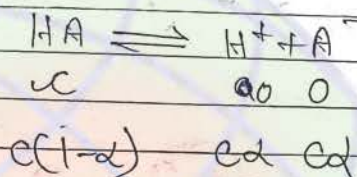 HA ⇌ H⁺ + A⁻
c 0 0
c(1-α) cα cα